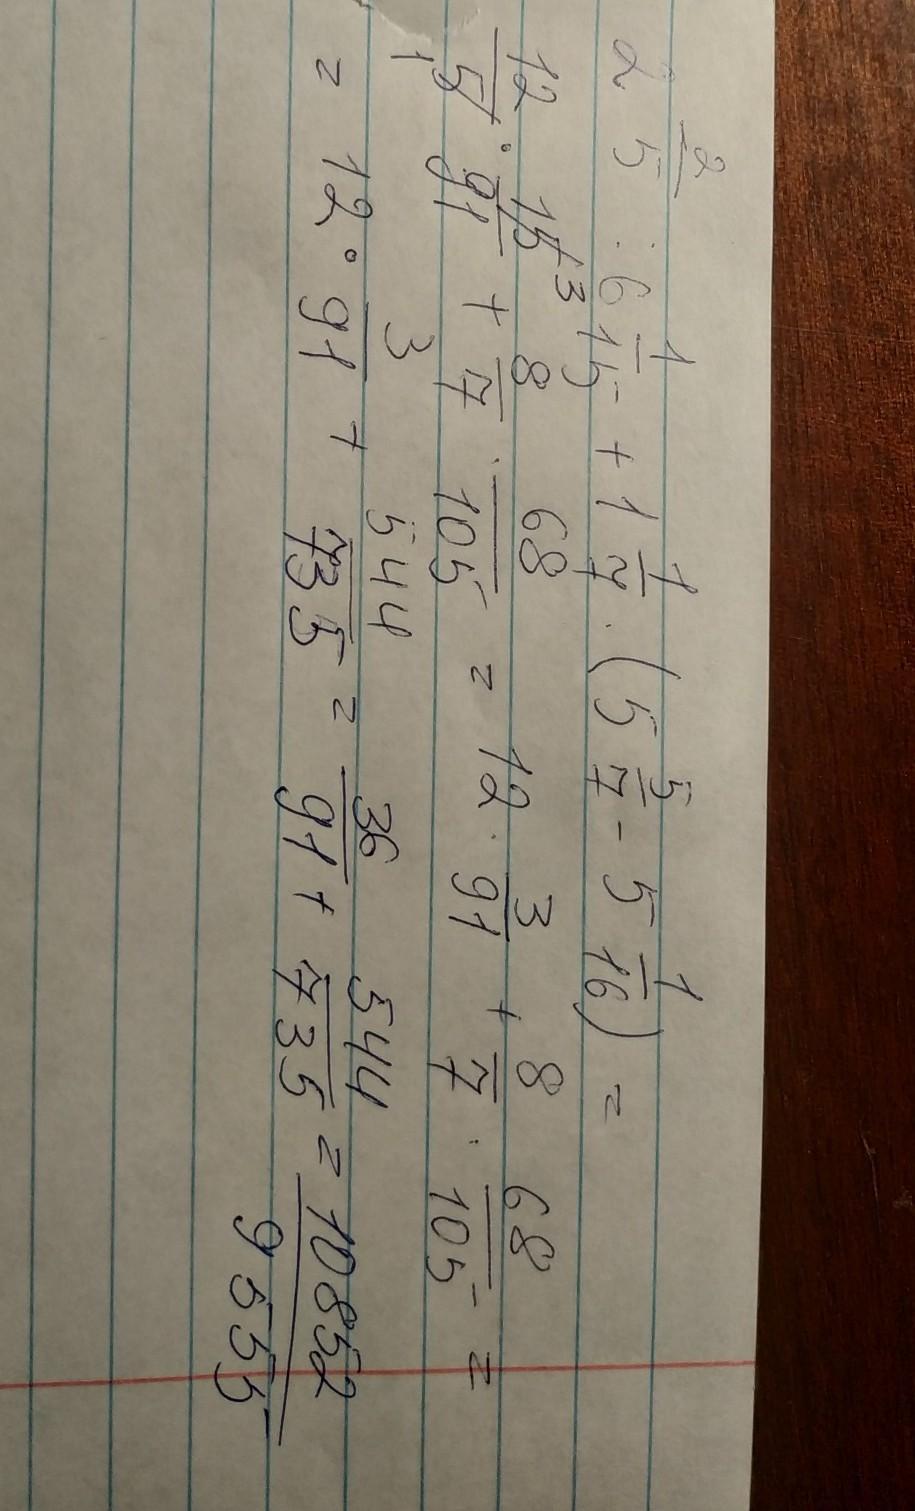 2 2/5 : 6 1/15 + 1 1/7 · (5 5/7 - 5 1/16) =
12/5 · 15/91 + 8/7 · 68/105 = 12 · 3/91 + 8/7 · 68/105 =
= 12 · 3/91 + 544/735 = 36/91 + 544/735 = 10852/9555